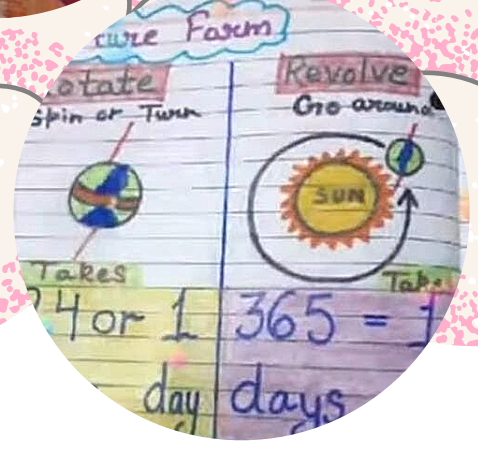 ture Farm
otate
Spin or Turn
Takes
24 or 1
day
Revolve
Gro around
SUN
Take
365 = 1
days